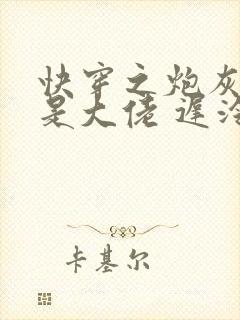 快穿之炮灰
是大佬 遲
卡基尔